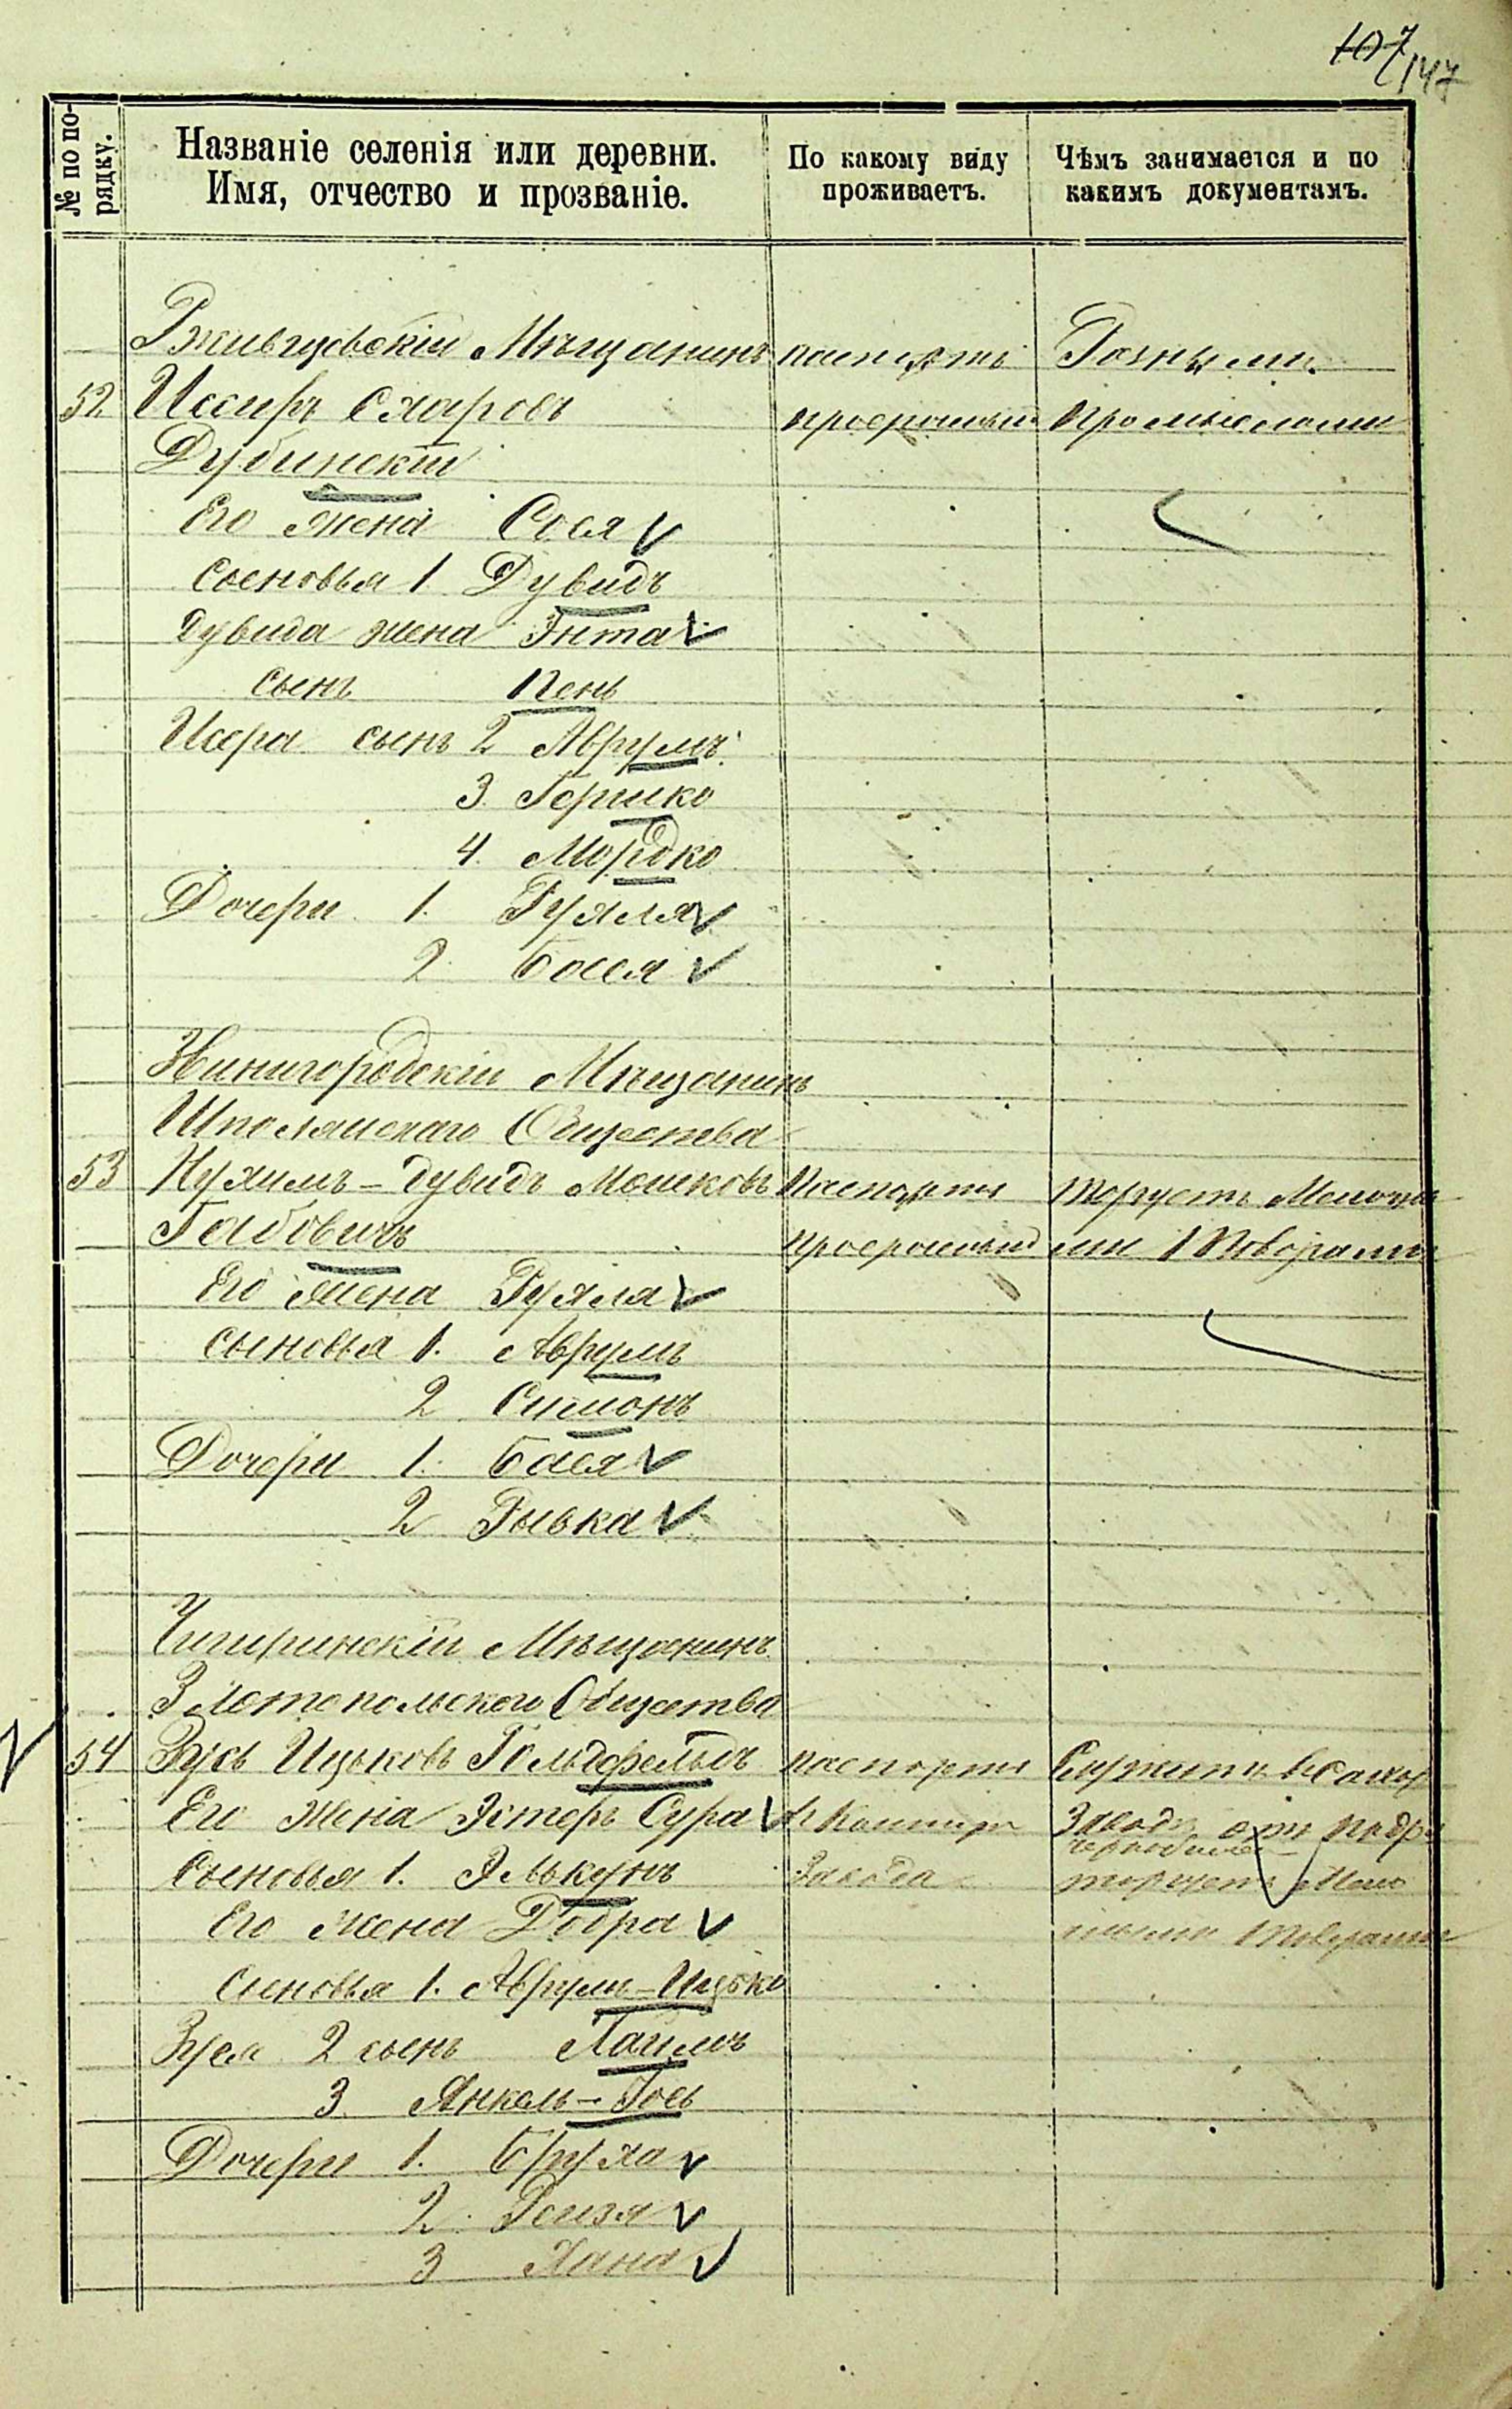 107/147
№ по по-
рядку.
Названіе селенія или деревни.
Имя, отчество и прозваніе.
По какому виду
проживаетъ.
Чѣмъ занимается и по
какимъ документамъ.
Ржищевскій Мѣщанинъ паспортъ Разными
52 Иссеръ Схаровъ просроченный промыслами
Дубинскій
Его жена Сося
Сыновья 1. Дувидъ
Дувида жена Энта
сынъ Пень
Исера сынъ 2 Аврумъ
3. Гершко
4. Мордко
Дочери 1. Рухля
2. Бася
Звинигородскій Мѣщанинъ
Шполянскаго Общества
53 Нухимъ-Дувидъ Мошковъ Паспортъ торгуетъ Мелочны
Габовичъ просроченный ми товорами
Его жена Рухля
Сыновья 1. Аврумъ
2 Симонъ
Дочери 1. Бася
2 Рывка
Чигиринскій Мѣщанинъ
Златопольского Общества
54 Зусь Ицьковъ Гольдфельдъ паспортъ Служитъ
Его Жена Эстеръ Сура Заводѣ
Сыновья 1. Элькунъ Завода торгуетъ Мело
Его жена Добра чными товерами
Сыновья 1. Аврумъ-Ицько
Зуся 2 сынъ Хаимъ
3 Янкель-Іось
Дочери 1. Бруха
2. Рейзя
3 Хана